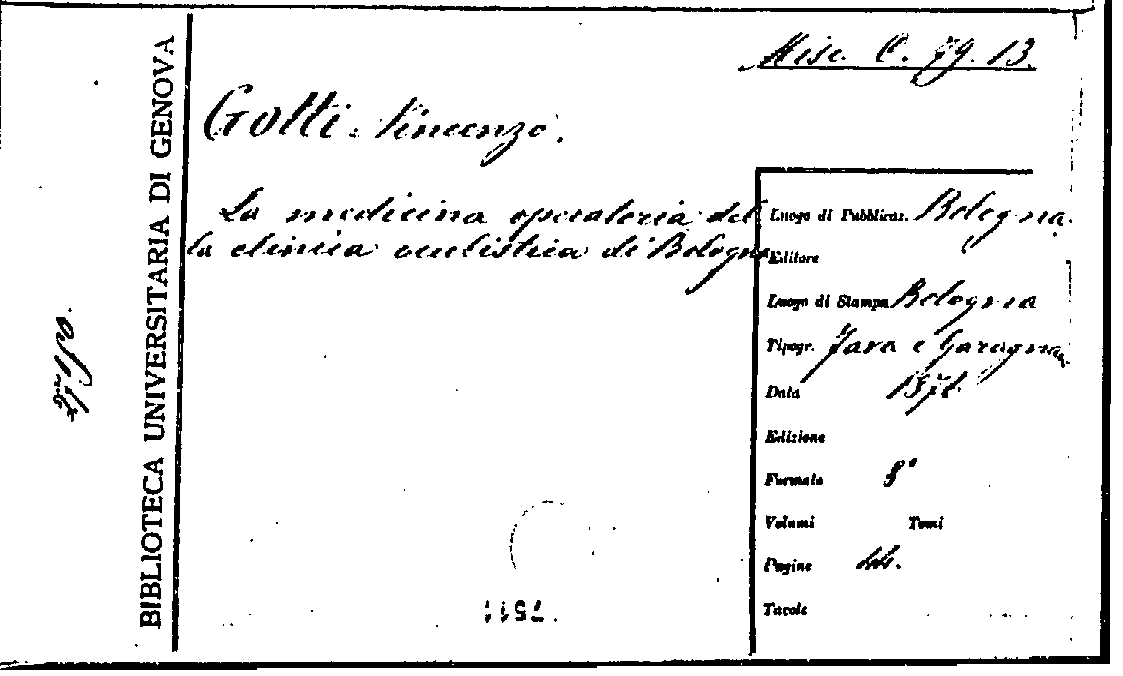 Misc. C. 79. 13.
Gotti Vincenzo.
La medicina operatoria del
la clinica oculistica di Bologna
BIBLIOTECA UNIVERSITARIA DI GENOVA
Luogo di Pubblicaz. Bologna.
Editore
Luogo di Stampa Bologna
Tipogr. Fava e Garagnani
Data
Edizione
Formato 8°
Volumi Tomi
Pagine 44.
Tavole